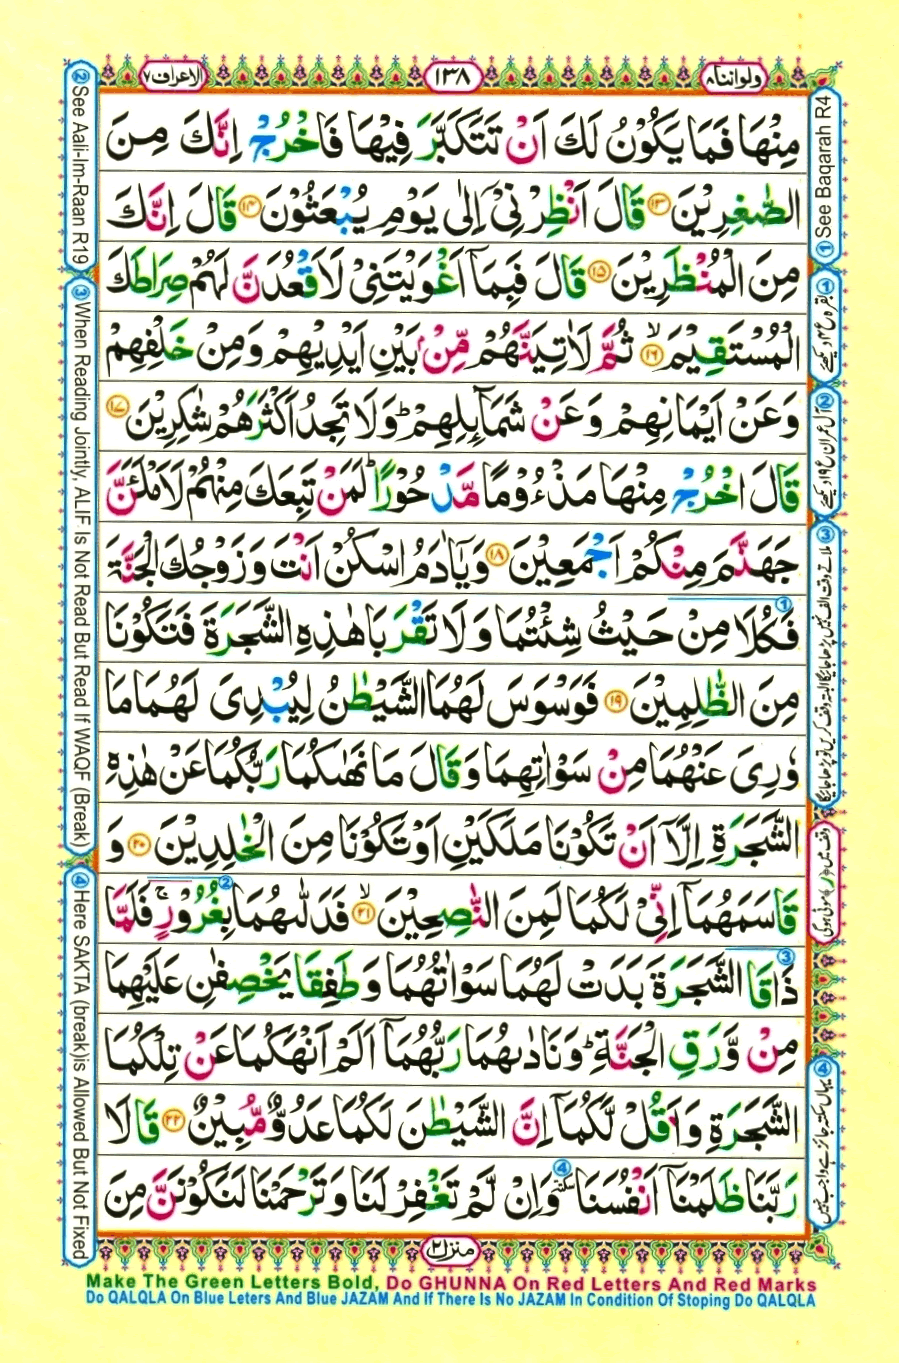 ولواننا۸
۱۳۸
الاعراف۷
مِنْهَا فَمَا يَكُوْنُ لَكَ اَنْ تَتَكَبَّرَ فِيْهَا فَاخْرُجْ اِنَّكَ مِنَ
الصّٰغِرِيْنَ ۱۳ قَالَ اَنْظِرْنِيْ اِلٰى يَوْمِ يُبْعَثُوْنَ ۱۴ قَالَ اِنَّكَ
مِنَ الْمُنْظَرِيْنَ ۱۵ قَالَ فَبِمَاۤ اَغْوَيْتَنِيْ لَاَقْعُدَنَّ لَهُمْ صِرَاطَكَ
الْمُسْتَقِيْمَ ۱۶ۙ ثُمَّ لَاٰتِيَنَّهُمْ مِّنْۢ بَيْنِ اَيْدِيْهِمْ وَمِنْ خَلْفِهِمْ
وَعَنْ اَيْمَانِهِمْ وَعَنْ شَمَآئِلِهِمْ ؕ وَلَا تَجِدُ اَكْثَرَهُمْ شٰكِرِيْنَ ۱۷
قَالَ اخْرُجْ مِنْهَا مَذْءُوْمًا مَّدْحُوْرًا ؕ لَمَنْ تَبِعَكَ مِنْهُمْ لَاَمْلَـَٔنَّ
جَهَنَّمَ مِنْكُمْ اَجْمَعِيْنَ ۱۸ وَيٰۤاٰدَمُ اسْكُنْ اَنْتَ وَزَوْجُكَ الْجَنَّةَ
فَكُلَا مِنْ حَيْثُ شِئْتُمَا وَلَا تَقْرَبَا هٰذِهِ الشَّجَرَةَ فَتَكُوْنَا ①
مِنَ الظّٰلِمِيْنَ ۱۹ فَوَسْوَسَ لَهُمَا الشَّيْطٰنُ لِيُبْدِيَ لَهُمَا مَا
وٗرِيَ عَنْهُمَا مِنْ سَوْاٰتِهِمَا وَقَالَ مَا نَهٰىكُمَا رَبُّكُمَا عَنْ هٰذِهِ
الشَّجَرَةِ اِلَّاۤ اَنْ تَكُوْنَا مَلَكَيْنِ اَوْ تَكُوْنَا مِنَ الْخٰلِدِيْنَ ۲۰ وَ
قَاسَمَهُمَاۤ اِنِّيْ لَكُمَا لَمِنَ النّٰصِحِيْنَ ۲۱ۙ فَدَلّٰىهُمَا بِغُرُوْرٍ ② ۚ فَلَمَّا
ذَاقَا ③ الشَّجَرَةَ بَدَتْ لَهُمَا سَوْاٰتُهُمَا وَطَفِقَا يَخْصِفٰنِ عَلَيْهِمَا
مِنْ وَّرَقِ الْجَنَّةِ ؕ وَنَادٰىهُمَا رَبُّهُمَاۤ اَلَمْ اَنْهَكُمَا عَنْ تِلْكُمَا
الشَّجَرَةِ وَاَقُلْ لَّكُمَاۤ اِنَّ الشَّيْطٰنَ لَكُمَا عَدُوٌّ مُّبِيْنٌ ۲۲ قَالَا
رَبَّنَا ظَلَمْنَاۤ اَنْفُسَنَا سكتة ④ وَاِنْ لَّمْ تَغْفِرْ لَنَا وَتَرْحَمْنَا لَنَكُوْنَنَّ مِنَ
منزل۲
① See Baqarah R4
② See Aali-Im-Raan R19
③ When Reading Jointly, ALIF Is Not Read But Read If WAQF (Break)
④ Here SAKTA (break)is Allowed But Not Fixed
Make The Green Letters Bold, Do GHUNNA On Red Letters And Red Marks
Do QALQLA On Blue Leters And Blue JAZAM And If There Is No JAZAM In Condition Of Stoping Do QALQLA